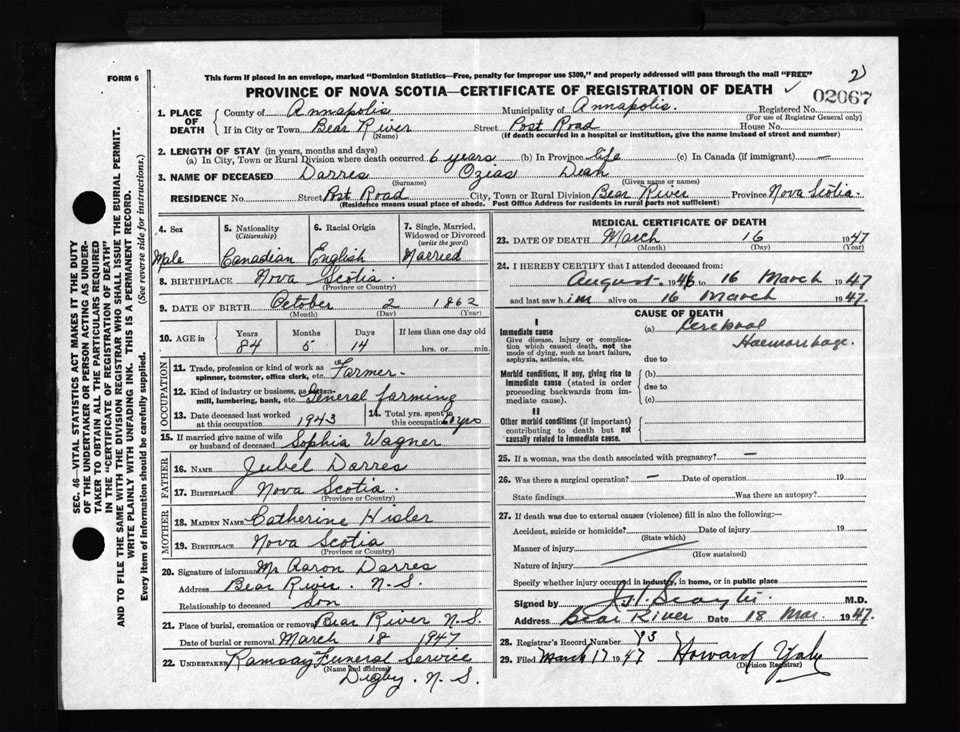 FORM 6
This form if placed in an envelope, marked "Dominion Statistics—Free, penalty for improper use $300," and properly addressed will pass through the mail "FREE"
2
PROVINCE OF NOVA SCOTIA—CERTIFICATE OF REGISTRATION OF DEATH
02067
1. PLACE OF DEATH
County of Annapolis Municipality of Annapolis. Registered No.
(For use of Registrar General only)
If in City or Town Bear River Street Post Road House No.
(Name) (If death occurred in a hospital or institution, give the name instead of street and number)
2. LENGTH OF STAY (in years, months and days)
(a) In City, Town or Rural Division where death occurred 6 years (b) In Province life (c) In Canada (if immigrant) —
3. NAME OF DECEASED Darres Ozias Leah
(Surname) (Given name or names)
RESIDENCE No. Street Post Road City, Town or Rural Division Bear River Province Nova Scotia.
(Residence means usual place of abode. Post Office Address for residents in rural parts not sufficient)
4. Sex Male
5. Nationality (Citizenship) Canadian
6. Racial Origin English
7. Single, Married, Widowed or Divorced (write the word) Married
8. BIRTHPLACE Nova Scotia.
(Province or Country)
9. DATE OF BIRTH October 2 1862
(Month) (Day) (Year)
10. AGE in Years 84 Months 5 Days 14 If less than one day old hrs. or min.
OCCUPATION
11. Trade, profession or kind of work as spinner, teamster, office clerk, etc. Farmer
12. Kind of industry or business, as cotton-mill, lumbering, bank, etc. General farming
13. Date deceased last worked at this occupation 1943
14. Total yrs. spent in this occupation 60 yrs
15. If married give name of wife or husband of deceased Sophia Wagner
FATHER
16. NAME Jubel Darres
17. BIRTHPLACE Nova Scotia.
(Province or Country)
MOTHER
18. MAIDEN NAME Catherine Hisler
19. BIRTHPLACE Nova Scotia
(Province or Country)
20. Signature of informant Mr Aaron Darres
Address Bear River. N.S.
Relationship to deceased son
21. Place of burial, cremation or removal Bear River N.S.
Date of burial or removal March 18 1947
22. UNDERTAKER Ramsay Funeral Service
(Name and address)
Digby. N.S.
MEDICAL CERTIFICATE OF DEATH
23. DATE OF DEATH March 16 1947
(Month) (Day) (Year)
24. I HEREBY CERTIFY that I attended deceased from
August. 1946 to 16 March 1947
and last saw him alive on 16 March 1947.
CAUSE OF DEATH
I
Immediate cause
Give disease, injury or complication which caused death, not the mode of dying, such as heart failure, asphyxia, asthenia, etc.
(a) Cerebral
Haemorrhage.
due to
Morbid conditions, if any, giving rise to immediate cause (stated in order proceeding backwards from immediate cause).
(b)
due to
(c)
II
Other morbid conditions (if important) contributing to death but not causally related to immediate cause.
25. If a woman, was the death associated with pregnancy? —
26. Was there a surgical operation? — Date of operation 19
State findings Was there an autopsy?
27. If death was due to external causes (violence) fill in also the following:—
Accident, suicide or homicide? Date of injury 19
(State which)
Manner of injury
(How sustained)
Nature of injury
Specify whether injury occurred in industry, in home, or in public place
Signed by M.D.
Address Bear River Date 18 Mar. 1947.
28. Registrar's Record Number 83
29. Filed March 17 1947 Howard
(Division Registrar)
SEC. 46—VITAL STATISTICS ACT MAKES IT THE DUTY
OF THE UNDERTAKER OR PERSON ACTING AS UNDER-
TAKER TO OBTAIN ALL THE PARTICULARS REQUIRED
IN THE "CERTIFICATE OF REGISTRATION OF DEATH"
AND TO FILE THE SAME WITH THE DIVISION REGISTRAR WHO SHALL ISSUE THE BURIAL PERMIT.
WRITE PLAINLY WITH UNFADING INK. THIS IS A PERMANENT RECORD.
Every item of information should be carefully supplied. (See reverse side for instructions.)